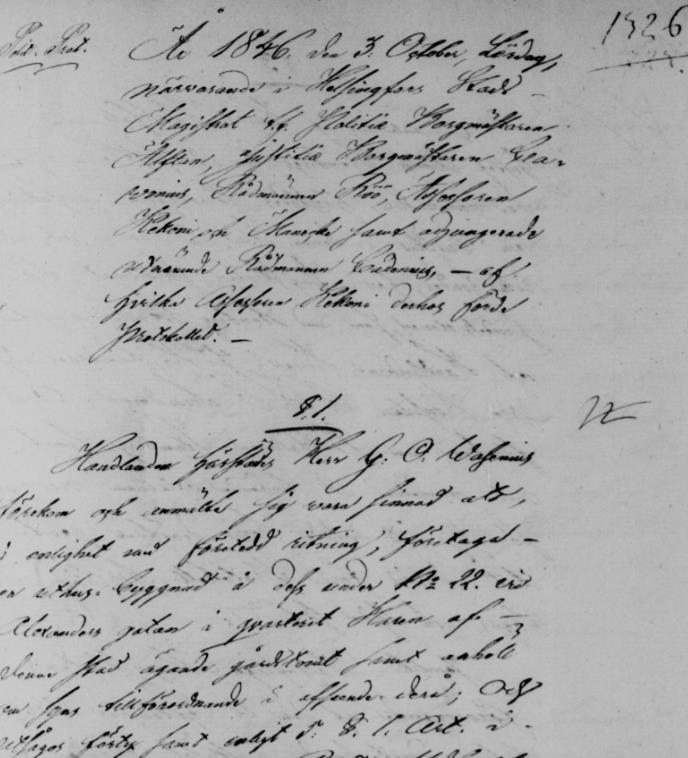 1526
Polit. Prot.
År 1846. den 3. October, Lördag,
närvarande i Helsingfors Stads
Magistrat Politiæ Borgmästaren
Alftan, Justitiæ Borgmästaren
Rådmännen Röö, Assessoren
Kekoni och samt adjungerade
Rådmannen — af
hvilka Assessoren Kekoni derhos förde
Protokollet. —
§. 1.
Handlanden härstädes Herr G. O. Wasenius
förekom och anmälte sig vara sinnad att,
i enlighet med företedd ritning, företaga
en uthus-byggnad å dess under No 22. vid
Alexanders gatan i qvarteret Haren af
denna stad ägande gårdstomt samt anhöll
om syns tillförordnande i afseende derå; och
samt enligt 5. §. 1. Art. i